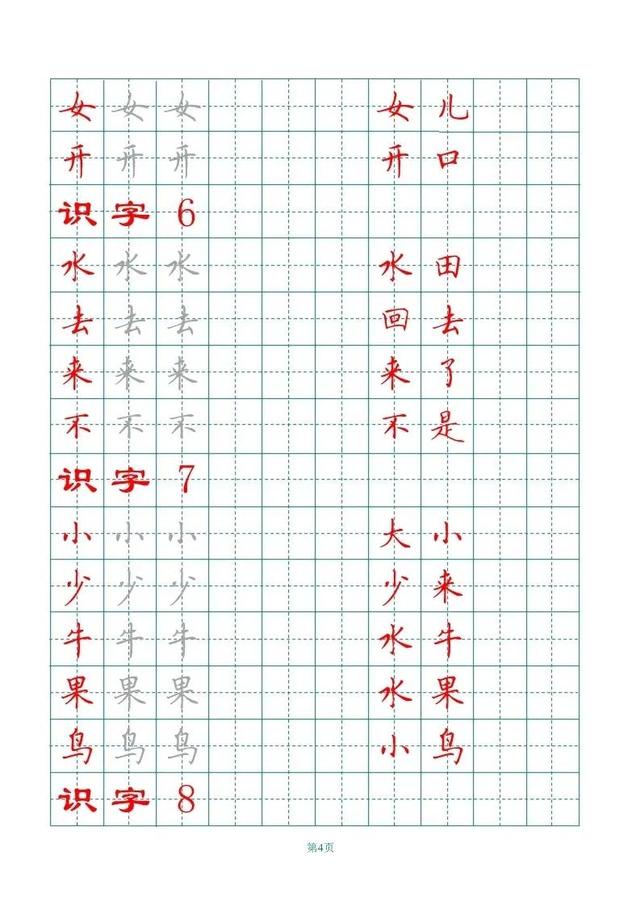 女 女 女 女 儿
开 开 开 开 口
识 字 6
水 水 水 水 田
去 去 去 回 去
来 来 来 来 了
不 不 不 不 是
识 字 7
小 小 小 大 小
少 少 少 少 来
牛 牛 牛 水 牛
果 果 果 水 果
鸟 鸟 鸟 小 鸟
识 字 8
第4页